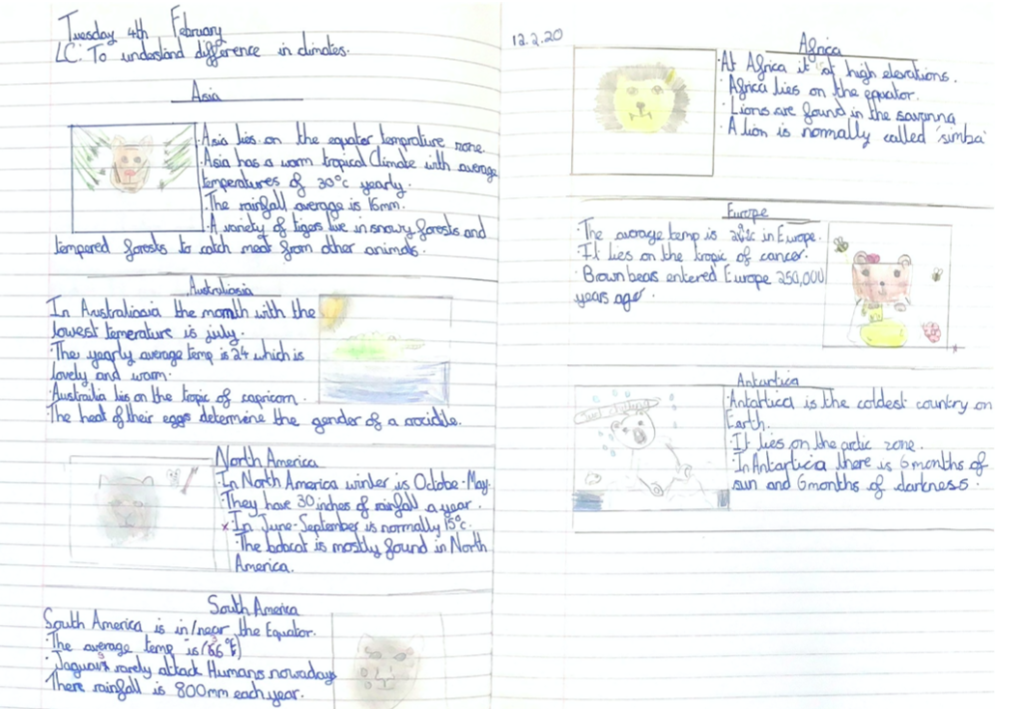 Tuesday 4th February
LC: To understand difference in climates.
Asia
·Asia lies on the equater temprature zone
·Asia has a warm tropical Climate with average
temperatures of 30°c yearly.
·The rainfall average is 16mm.
·A variety of tigers live in snowy forests and
tempered forests to catch meat from other animals.
Australiasia
In Australiasia the month with the
lowest temerature is july.
·The yearly average temp is 24 which is
lovely and warm.
·Austrailia lies on the tropic of capricorn.
·The heat of their eggs determine the gender of a crocidile.
North America
·In North America winter is Octobe-May.
·They have 30 inches of rainfall a year.
·In June-September is normally 15°c.
·The bobcat is mostly found in North
America.
South America
South America is in/near the Equator.
·The average temp is
·Jaguars rarely attack Humans nowadays
There rainfall is 800mm each year.
12.2.20
Africa
·At Africa it of high elevations.
·Africa lies on the equator.
·Lions are found in the savanna
·A lion is normally called 'simba'
Europe
·The average temp is in Europe.
·It lies on the tropic of cancer.
·Brown bears entered Europe 250,000
years ago.
Antartica
·Antartica is the coldest country on
Earth.
·It lies on the arctic zone.
·In Antarticia there is 6 months of
sun and 6 months of darkness.